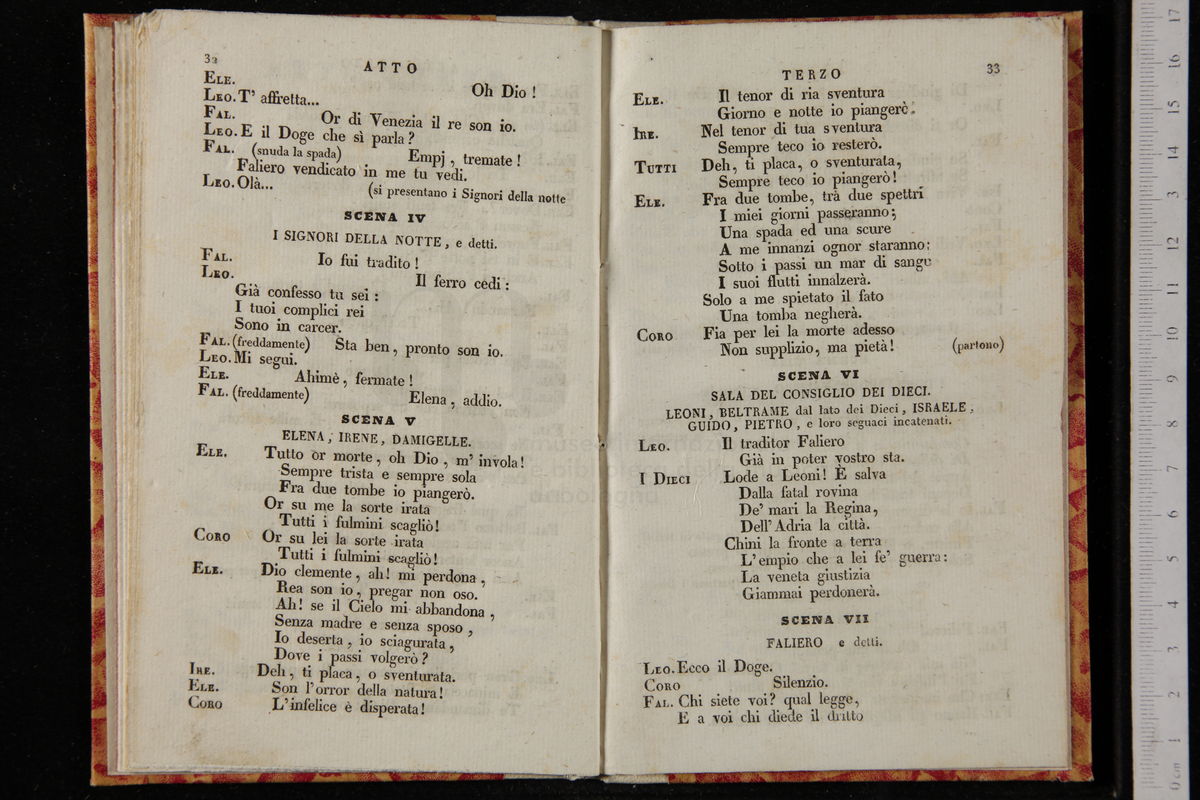 32
ATTO
ELE. Oh Dio !
LEO. T' affretta...
FAL. Or di Venezia il re son io.
LEO. E il Doge che sì parla ?
FAL. (snuda la spada) Empj , tremate !
Faliero vendicato in me tu vedi.
LEO. Olà... (si presentano i Signori della notte
SCENA IV
I SIGNORI DELLA NOTTE , e detti.
FAL. Io fui tradito !
LEO. Il ferro cedi :
Già confesso tu sei :
I tuoi complici rei
Sono in carcer.
FAL. (freddamente) Sta ben , pronto son io.
LEO. Mi segui.
ELE. Ahimè , fermate !
FAL. (freddamente) Elena , addio.
SCENA V
ELENA , IRENE , DAMIGELLE.
ELE. Tutto or morte , oh Dio , m' invola !
Sempre trista e sempre sola
Fra due tombe io piangerò.
Or su me la sorte irata
Tutti i fulmini scagliò !
CORO Or su lei la sorte irata
Tutti i fulmini scagliò !
ELE. Dio clemente , ah ! mi perdona ,
Rea son io , pregar non oso.
Ah ! se il Cielo mi abbandona ,
Senza madre e senza sposo ,
Io deserta , io sciagurata ,
Dove i passi volgerò ?
IRE. Deh , ti placa , o sventurata.
ELE. Son l'orror della natura !
CORO L'infelice è disperata !
TERZO
33
ELE. Il tenor di ria sventura
Giorno e notte io piangerò.
IRE. Nel tenor di tua sventura
Sempre teco io resterò.
TUTTI Deh, ti placa, o sventurata,
Sempre teco io piangerò !
ELE. Fra due tombe, trà due spettri
I miei giorni passeranno ;
Una spada ed una scure
A me innanzi ognor staranno :
Sotto i passi un mar di sangue
I suoi flutti innalzerà.
Solo a me spietato il fato
Una tomba negherà.
CORO Fia per lei la morte adesso
Non supplizio, ma pietà ! (partono)
SCENA VI
SALA DEL CONSIGLIO DEI DIECI.
LEONI , BELTRAME dal lato dei Dieci , ISRAELE ,
GUIDO , PIETRO , e loro seguaci incatenati.
LEO. Il traditor Faliero
Già in poter vostro sta.
I DIECI Lode a Leoni ! È salva
Dalla fatal rovina
De' mari la Regina,
Dell' Adria la città.
Chini la fronte a terra
L' empio che a lei fe' guerra :
La veneta giustizia
Giammai perdonerà.
SCENA VII
FALIERO e detti.
LEO. Ecco il Doge.
CORO Silenzio.
FAL. Chi siete voi ? qual legge,
E a voi chi diede il dritto
0 cm 1 2 3 4 5 6 7 8 9 10 11 12 13 14 15 16 17